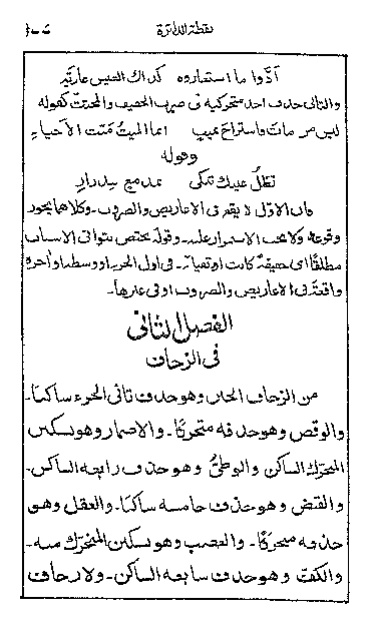 نقطة الدائرة
أدّوا ما استعاروه كذاك العيش عاريّه
والثاني حذف احد متحركيه في ضرب الخفيف والمجتث كقوله
ليس من مات فاستراح بميت انما الميتُ مَيّت الأحياءِ
وقوله
تظلّ عينك تبكي بدمع مدرارِ
فان الاوّل لا يقع في الاعاريض والضروب وكلاهما يجوز
وقوعه ولا يجب الاستمرار عليه وقوله يختص بثواني الاسباب
مطلقًا اي خفيفةً كانت او ثقيلة في اول الجزء او وسطه او آخره
واقعةً في الاعاريض والضروب او في غيرها
الفصل الثاني
في الزحاف
من الزحاف الخبن وهو حذف ثاني الجزء ساكنًا
والوقص وهو حذفه متحركًا والاضمار وهو تسكين
المتحرك الساكن والطيّ وهو حذف رابعه الساكن
والقبض وهو حذف خامسه ساكنًا والعقل وهو
حذفه متحركًا والعصب وهو تسكين المتحرّك منه
والكفّ وهو حذف سابعه الساكن ولا زحاف